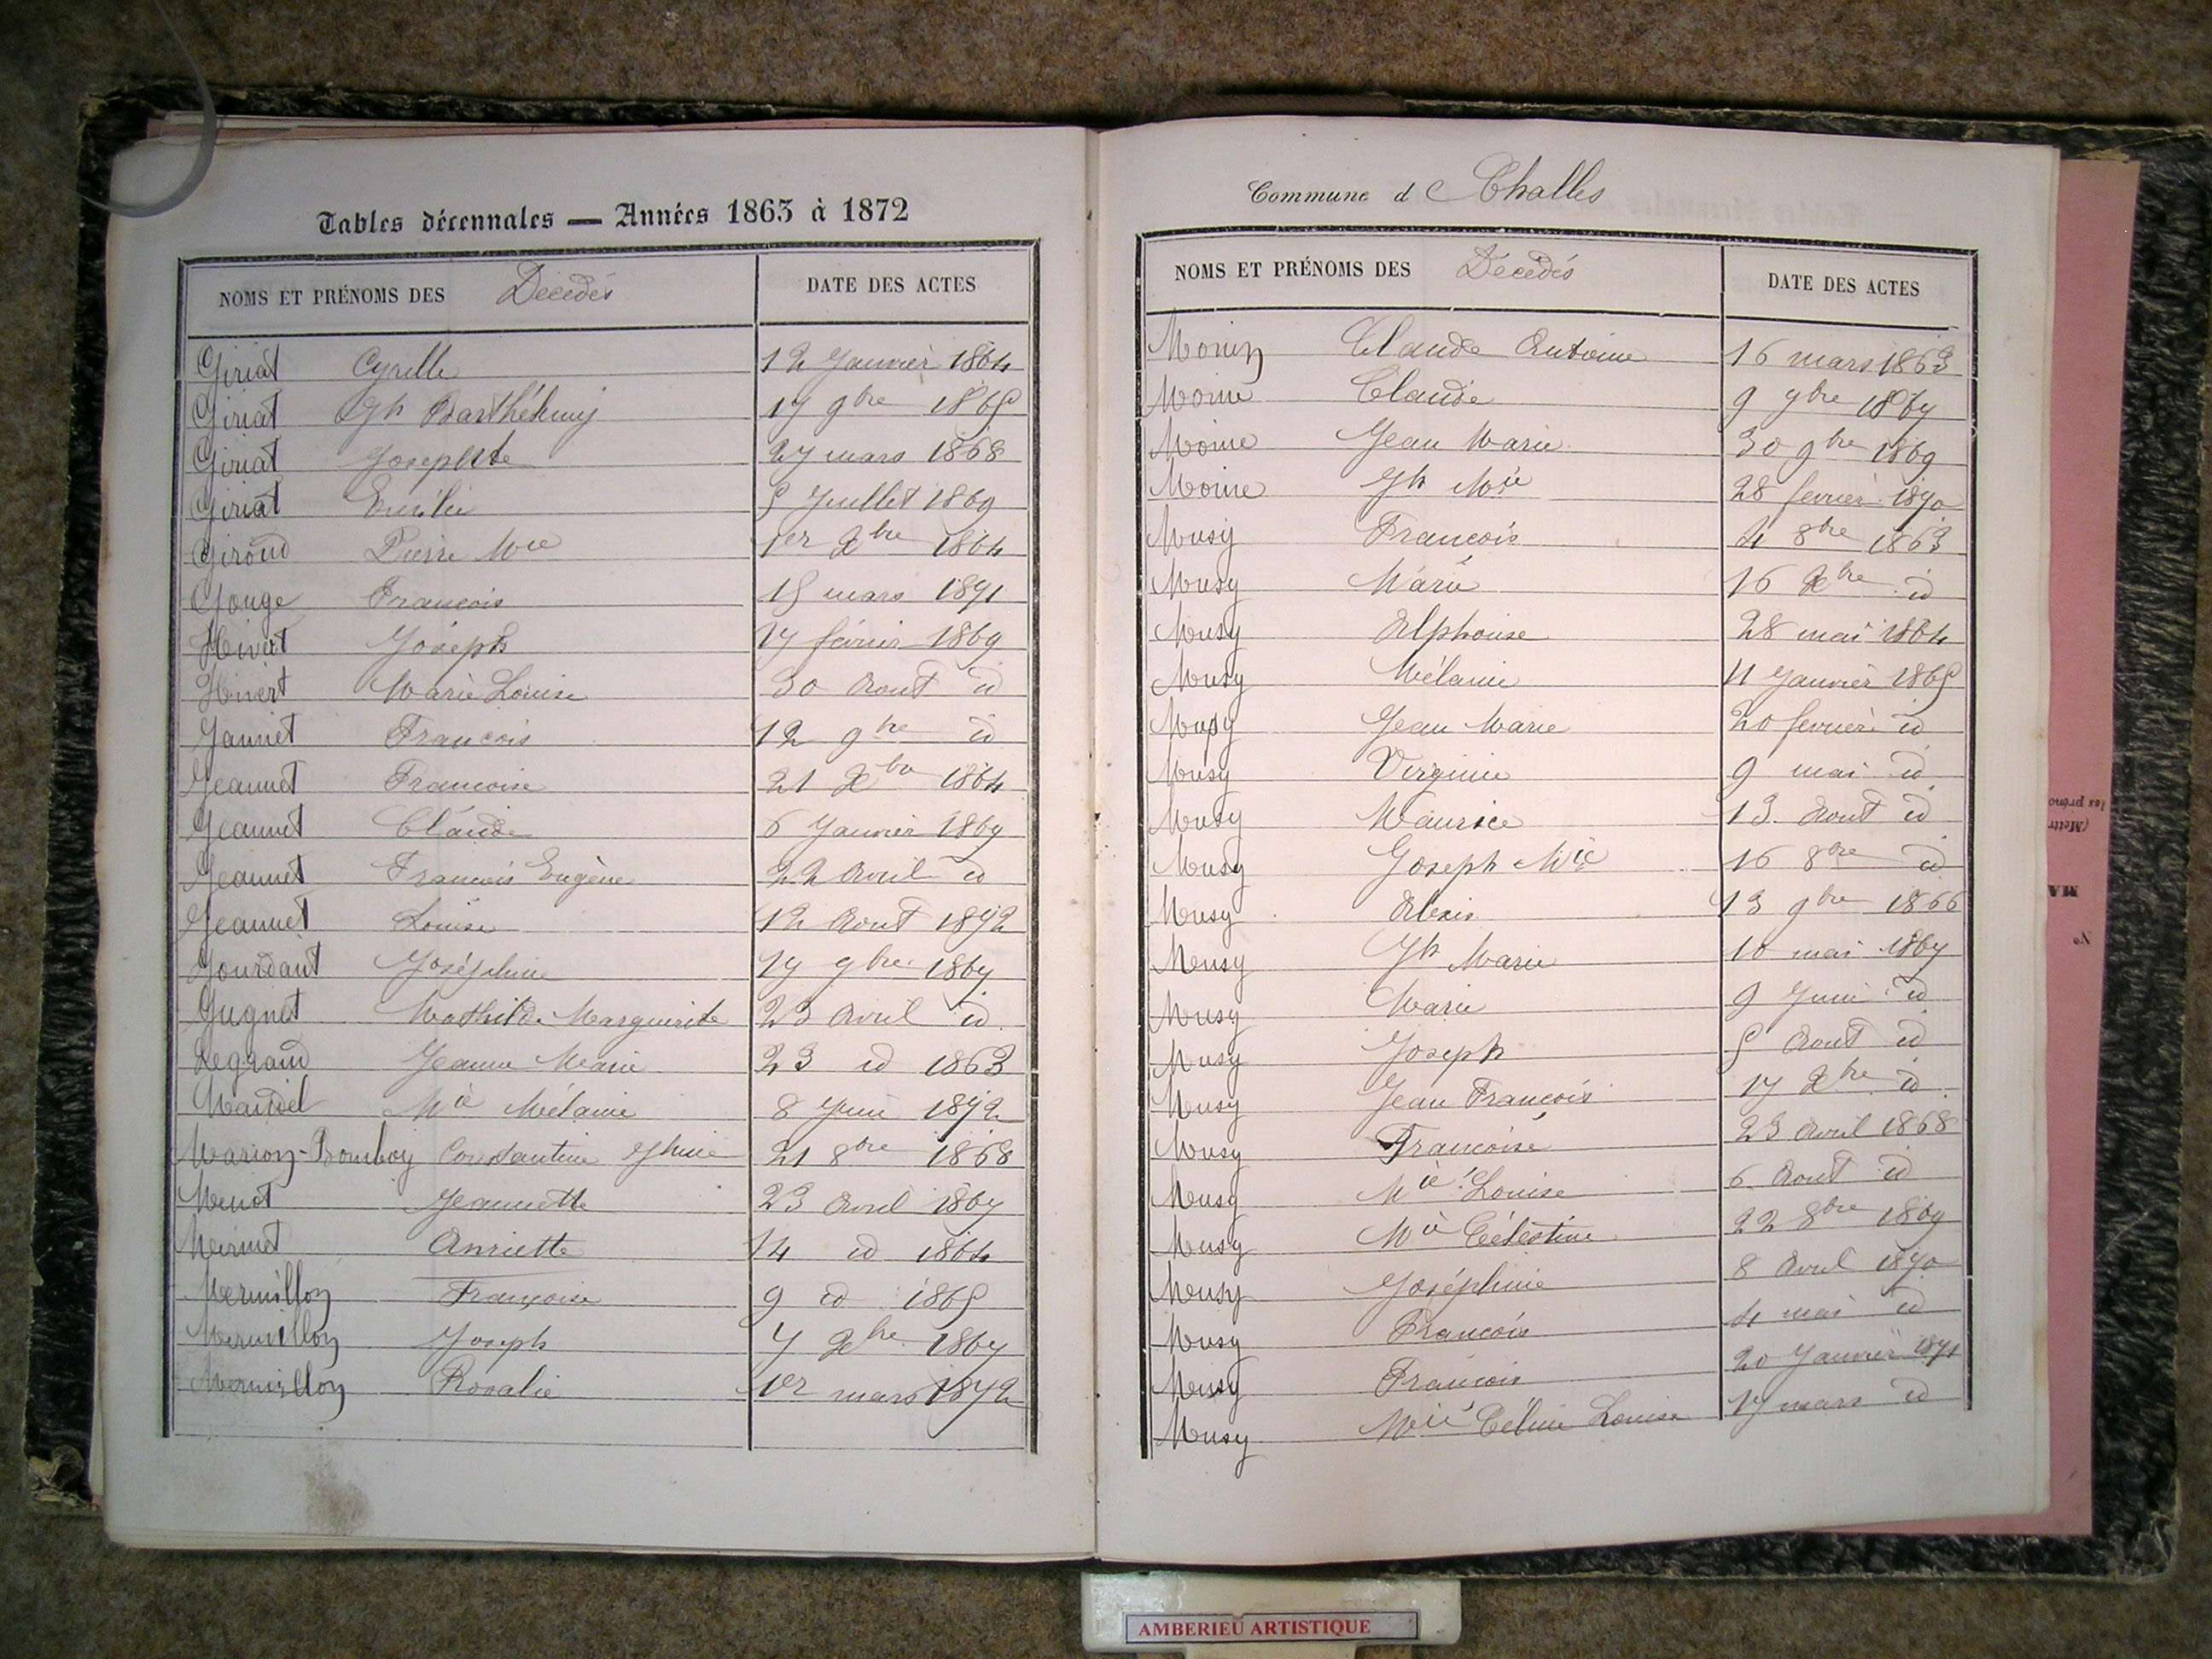 Tables décennales — Années 1863 à 1872
NOMS ET PRÉNOMS DES Décédés DATE DES ACTES
Giriat Cyrille 12 Janvier 1864
Giriat Jh Barthélemy 17 9bre 1865
Giriat Josephte 27 mars 1868
Giriat Emélie 5 Juillet 1869
Giroud Pierre Mie 1er Xbre 1864
Gouge François 15 mars 1871
Hivert Joseph 17 février 1869
Hivert Marie Louise 30 Aout id
Jannet François 12 9bre id
Jeannet Francoise 21 Xbre 1864
Jeannet Claude 6 Janvier 1867
Jeannet Francois Eugène 22 Avril id
Jeannet Louise 12 Aout 1872
Jourdant Joséphine 17 9bre 1867
Jugnet Mathilde Marguerite 23 Avril id
Legrand Jeanne Marie 23 id 1863
Mandel Mie Mélanie 8 Juin 1872
Marion-Bomboy Constantine Jhine 21 8bre 1868
Menot Jeannette 23 Avril 1867
Mermet Anriette 14 id 1864
Mermillon Françoise 9 id 1865
Mermillon Joseph 7 Xbre 1867
Mermillon Rosalie 1er mars 1872
Commune de Challes
NOMS ET PRÉNOMS DES Décédés DATE DES ACTES
Morin Claude Antoine 16 mars 1863
Moine Claude 9 9bre 1867
Moine Jean Marie 30 9bre 1869
Moine Jh Mie 28 fevrier 1870
Musy François 4 8bre 1863
Musy Marie 16 Xbre id
Musy Alphonse 28 mai 1864
Musy Mélanie 11 Janvier 1865
Musy Jean Marie 20 fevrier id
Musy Virginie 9 mai id
Musy Maurice 13 Aout id
Musy Joseph Mie 16 8bre id
Musy Alexis 13 9bre 1866
Musy Jh Marie 10 mai 1867
Musy Marie 9 Juin id
Musy Joseph 5 Aout id
Musy Jean François 17 Xbre id
Musy Francoise 23 Avril 1868
Musy Mie Louise 6 Aout id
Musy Mie Célestine 22 8bre 1869
Musy Joséphine 8 Avril 1870
Musy François 4 mai id
Musy François 20 Janvier 1871
Musy Mie Céline Louise 17 mars id
les prénom
(Mettr
MA
No
AMBERIEU ARTISTIQUE